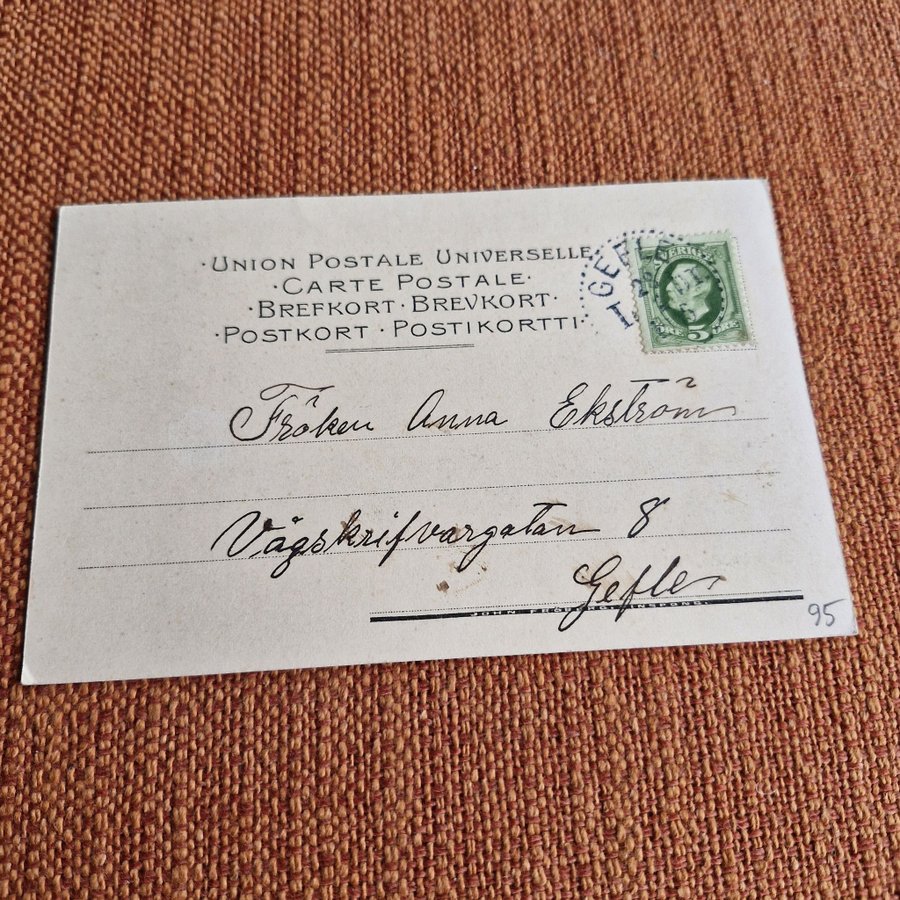 ·UNION POSTALE UNIVERSELLE
·CARTE POSTALE·
·BREFKORT·BREVKORT·
·POSTKORT·POSTIKORTTI·
GEFLE
26
SVERIGE
ÖRE 5 ÖRE
Fröken Anna Ekström
Vågskrifvargatan 8
Gefle
JOHN FRÖBERG, FINSPONG.
95